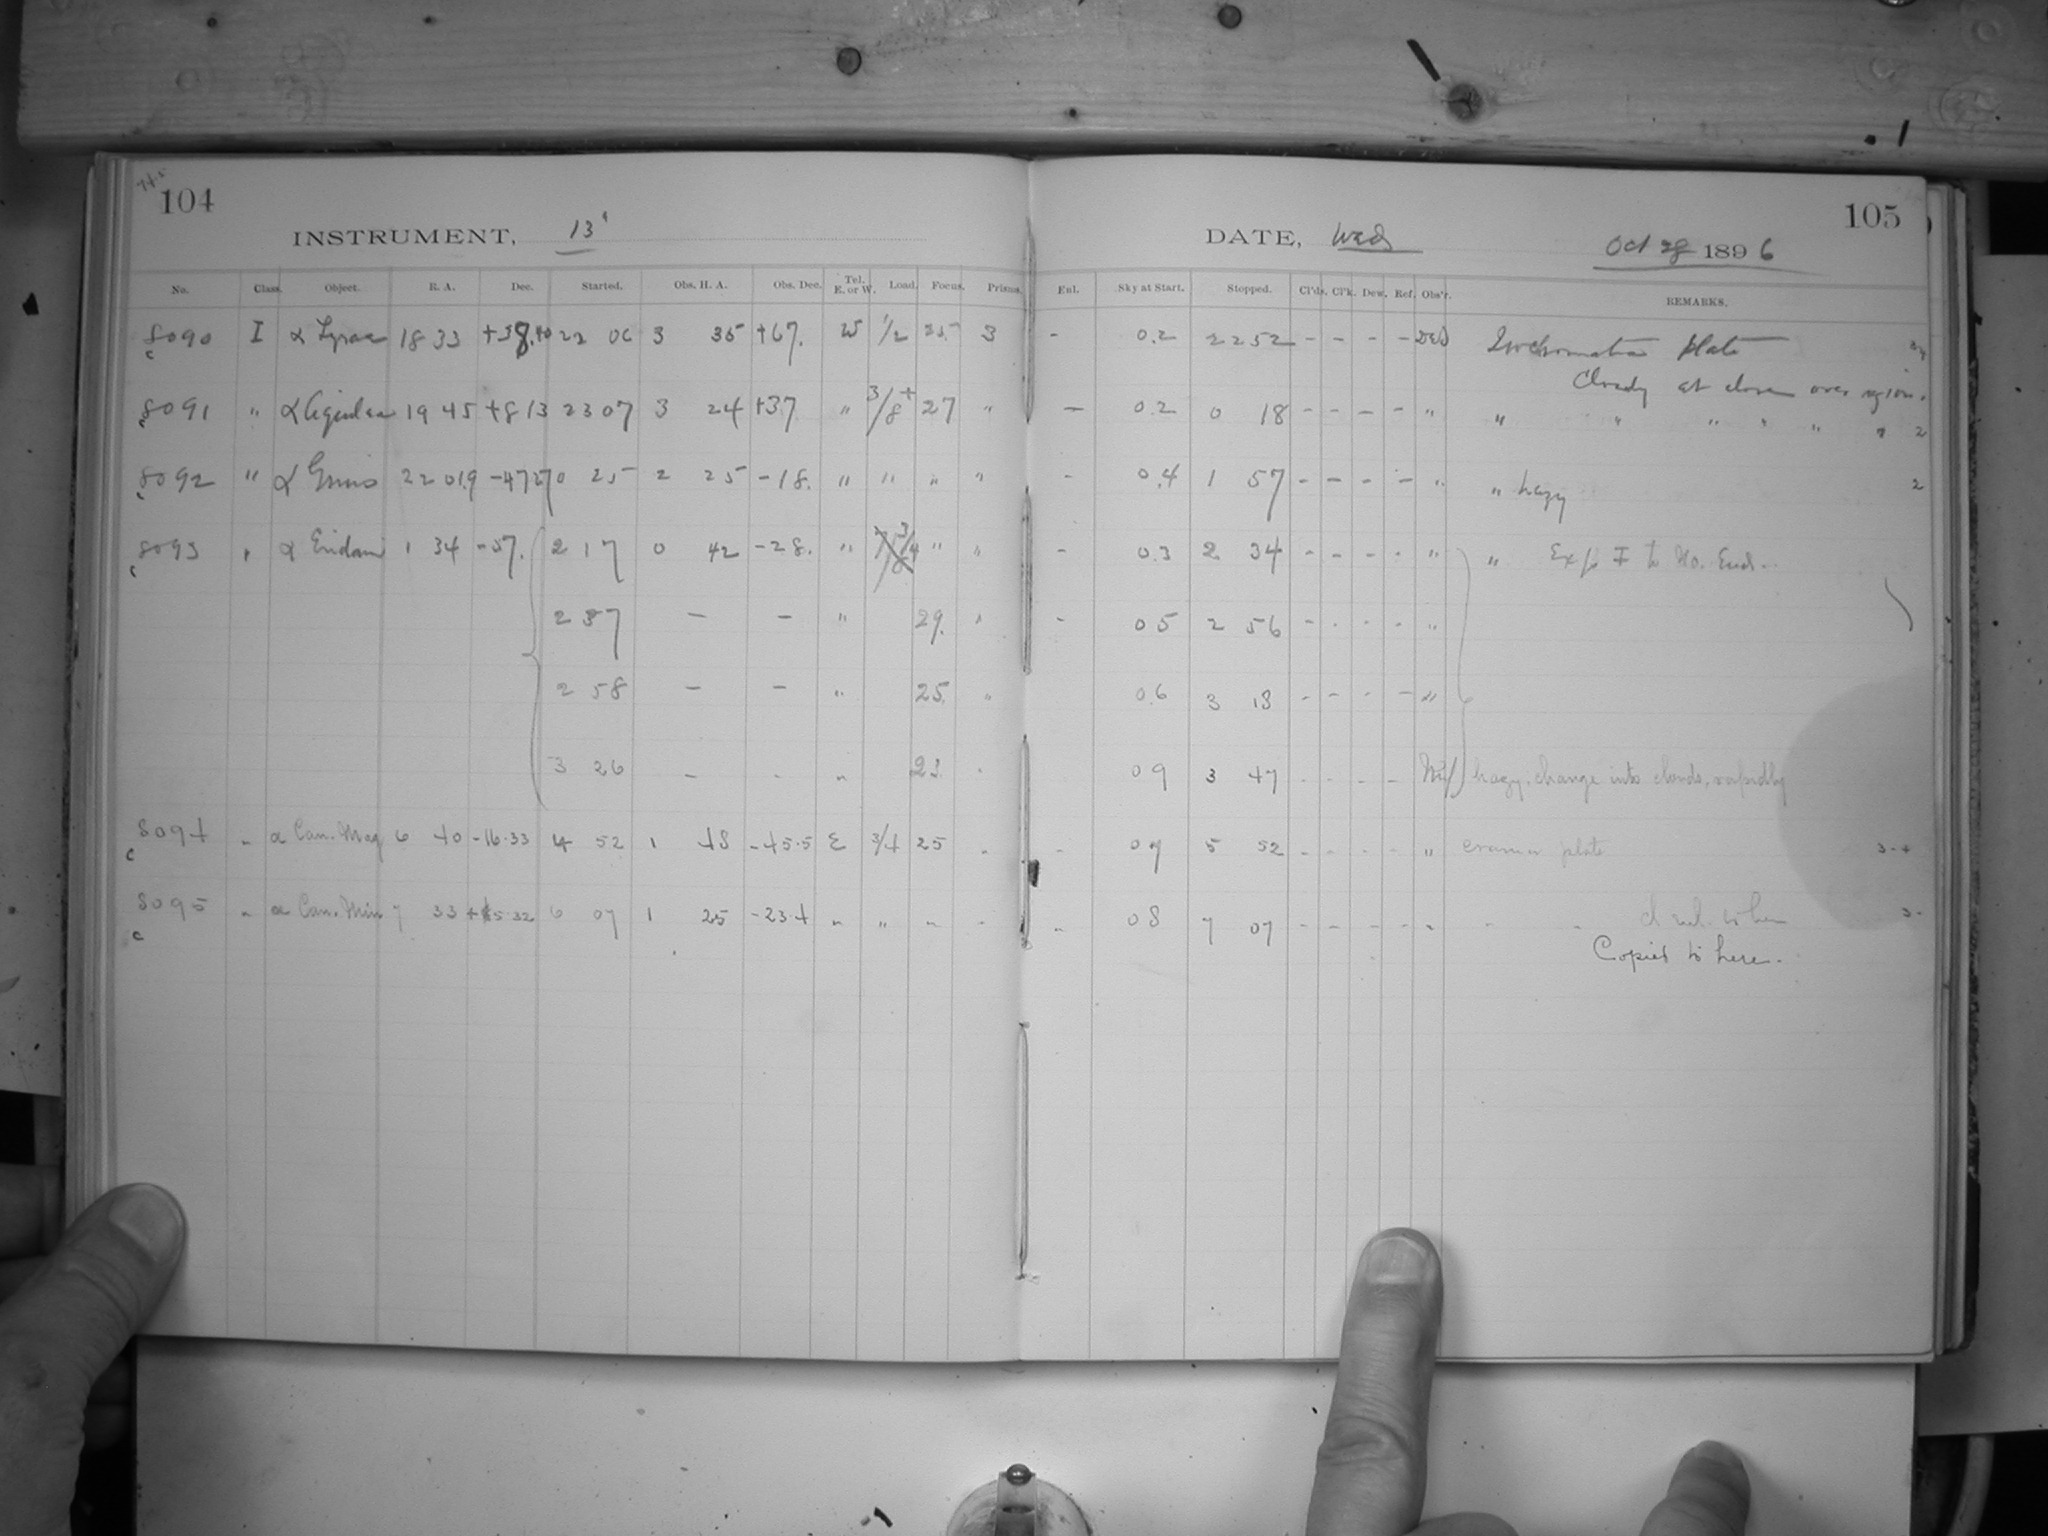 104
INSTRUMENT, 13"
No. Class. Object. R. A. Dec. Started. Obs. H. A. Obs. Dec. Tel. E. or W. Load. Focus. Prisms.
8090 I α Lyrae 18 33 +38.40 22 06 3 35 +67. W 1/2 25 3
8091 " α Aquilae 19 45 +8 13 23 07 3 24 +37 " 3/8+ 27 "
8092 " α Gruis 22 01.9 -47 27 0 25 2 25 -18. " " " "
8093 " α Eridani 1 34 -57. 2 17 0 42 -28. " 3/4 " "
2 37 - - " 29. "
2 58 - - " 25. "
3 26 - - " 23. "
8094 " α Can. Maj 6 40 -16.33 4 52 1 48 -45.5 E 3/4 25 "
8095 " α Can. Min 7 33 +5.32 6 07 1 25 -23.4 " " " "
105
DATE, Wed Oct 28 1896
Enl. Sky at Start. Stopped. Cl'ds. Cl'k. Dew. Ref. Obs'r. REMARKS.
- 0.2 22 52 - - - - Isochromatic Plate
Cloudy at close over region.
- 0.2 0 18 - - - - " " " " " " " 2
- 0.4 1 57 - - - - " " hazy 2
- 0.3 2 34 - - - - " " Exp I to No. End.
- 0.5 2 56 - - - - "
- 0.6 3 13 - - - - "
0.9 3 47 - - - - hazy; change into clouds, rapidly
- 0.7 5 52 - - - - " Cramer plate
- 0.8 7 07 - - - - " " " to here
Copied to here.